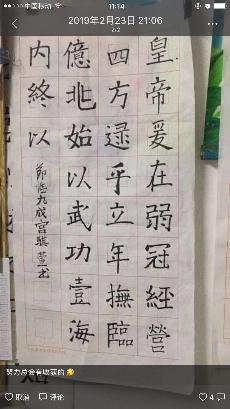 中国移动
11:14
2019年2月23日 21:06
2/2
皇帝爰在弱冠經營
四方逯乎立年撫臨
億兆始以武功壹海
内終以
節臨九成宮
努力总会有收获的
取消
评论
4